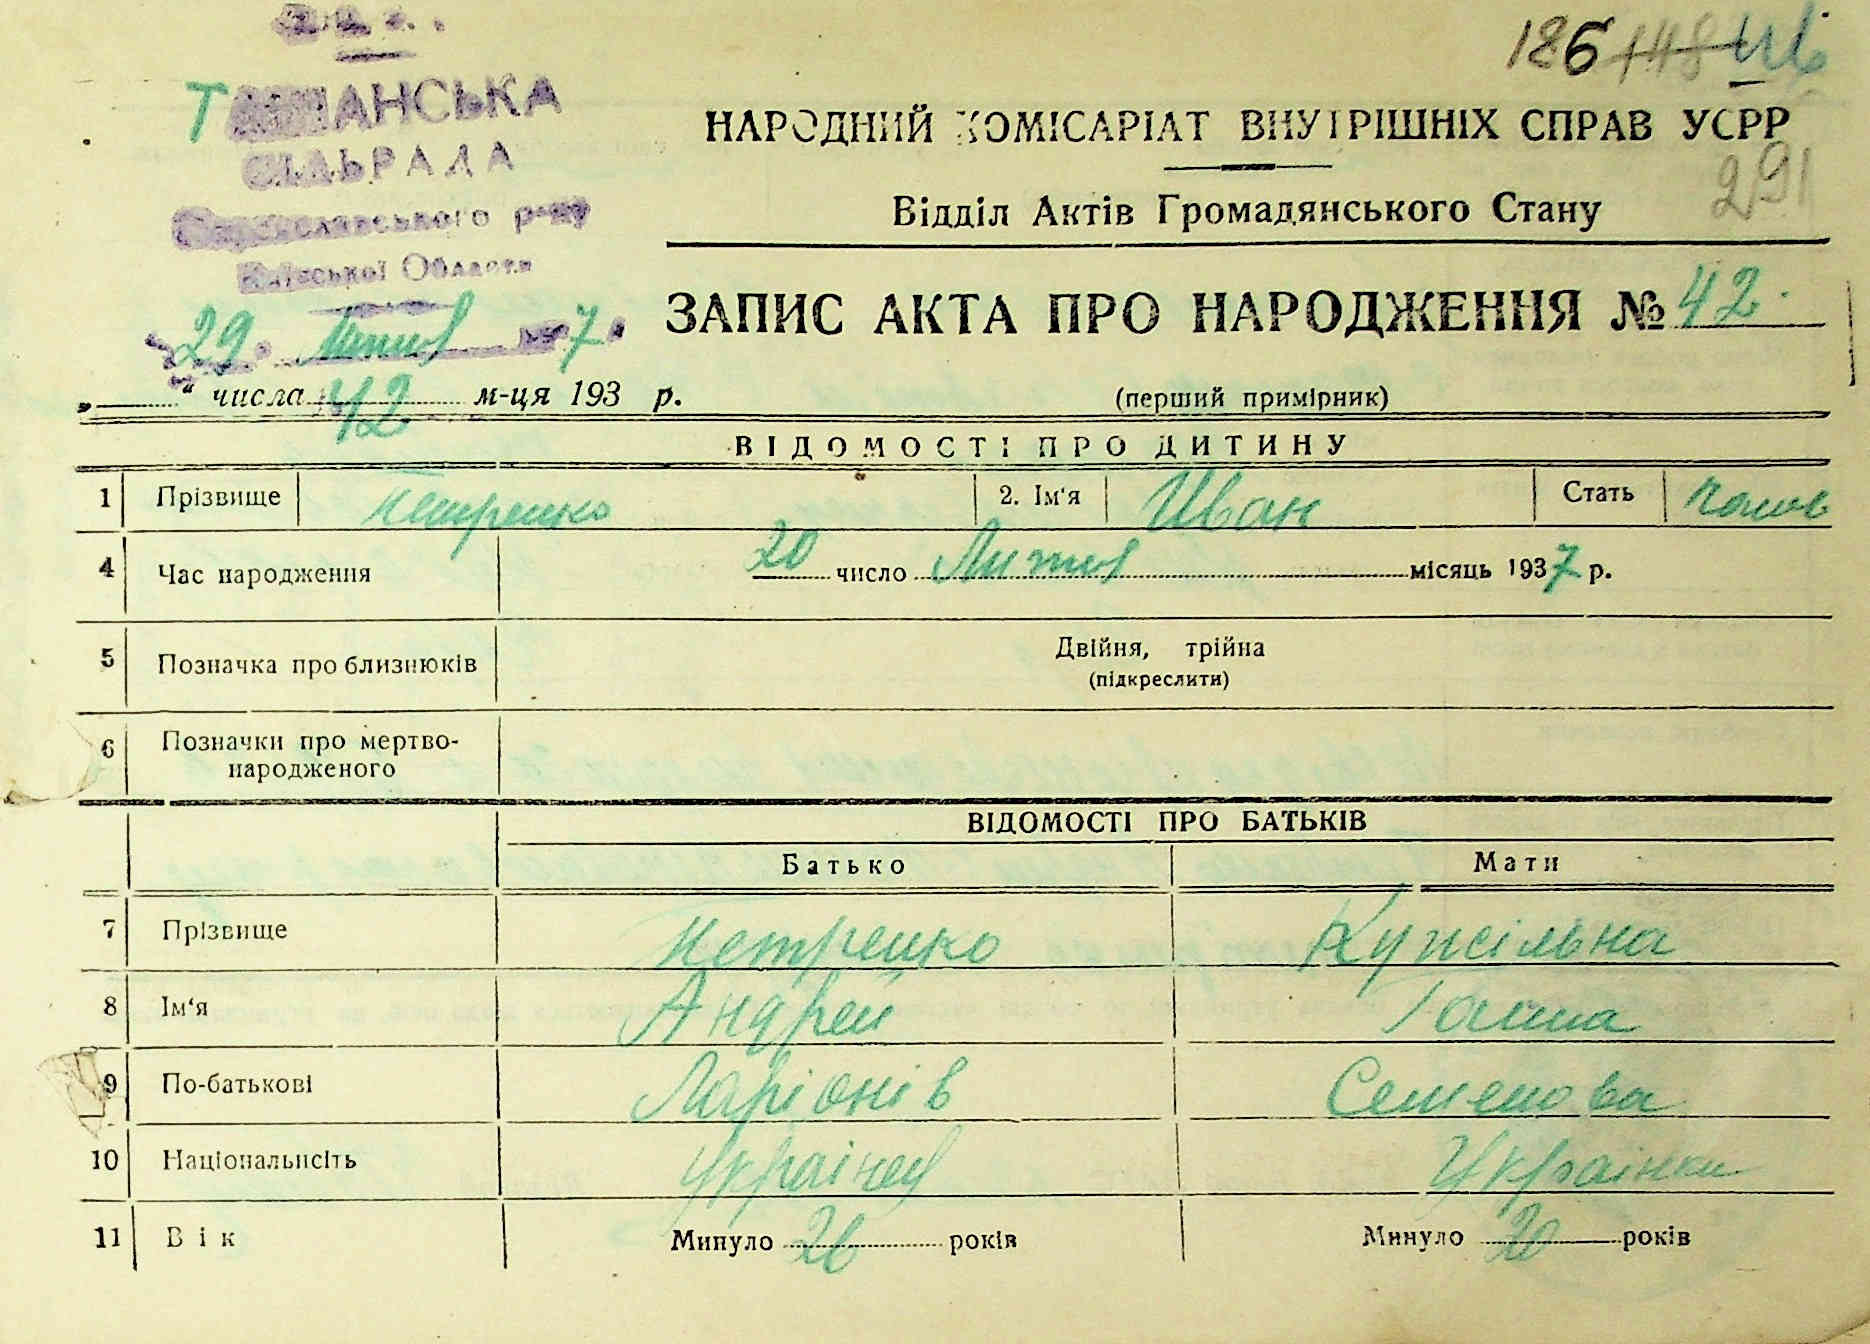 186 148
ТАШАНСЬКА
СІЛЬРАДА
Переяславського р-ну
Київської Области
29 7
НАРОДНИЙ КОМІСАРІАТ ВНУТРІШНІХ СПРАВ УСРР
291
Відділ Актів Громадянського Стану
ЗАПИС АКТА ПРО НАРОДЖЕННЯ № 42
„ “ числа 42 м-ця 193 р.
(перший примірник)
ВІДОМОСТІ ПРО ДИТИНУ
1 Прізвище Петренко 2. Ім'я Иван Стать чолов
4 Час народження 20 число Лютий місяць 1937 р.
5 Позначка про близнюків Двійня, трійна
(підкреслити)
6 Позначки про мертво-
народженого
ВІДОМОСТІ ПРО БАТЬКІВ
Батько Мати
7 Прізвище Петренко Кужільна
8 Ім'я Андрей Ганна
9 По-батькові Ларіонів Семенова
10 Національнсіть Українец Українка
11 Вік Минуло 26 років Минуло 20 років